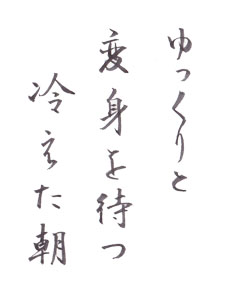 ゆっくりと
変身を待つ
冷えた朝